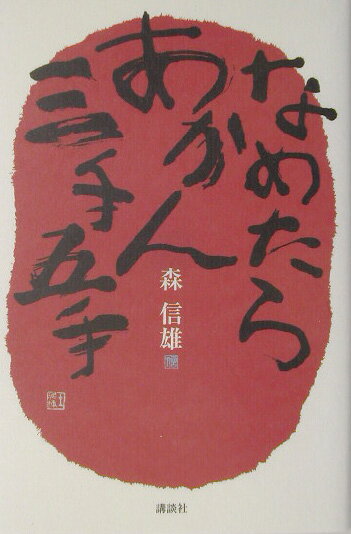 なめたら
あかん
三手五手
森 信雄
講談社